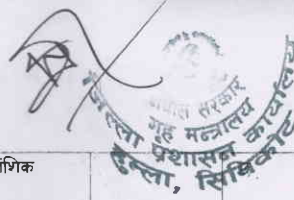 नेपाल सरकार
गृह मन्त्रालय
जिल्ला प्रशासन कार्यालय
हुम्ला, सिमिकोट
शिक